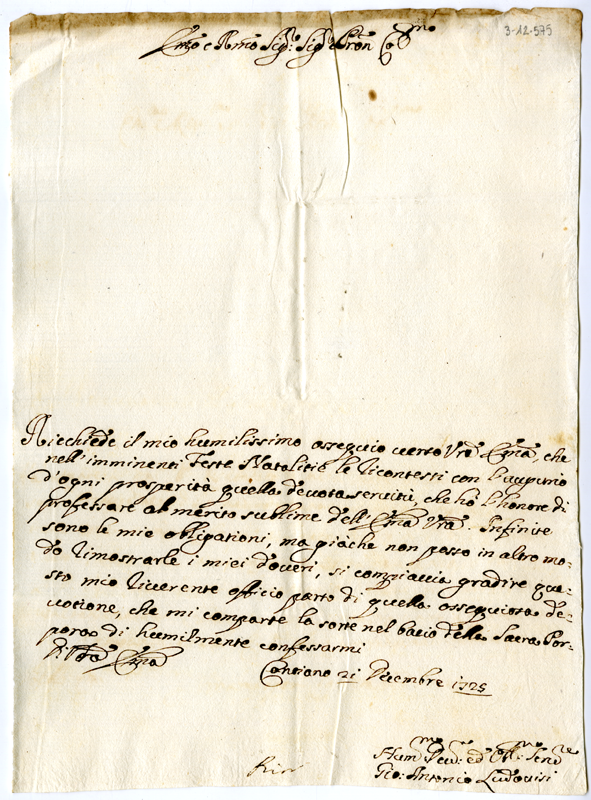 3-12-575
Emo e Rmo Sig: Sig Pron Colmo
Richiede il mio humilissimo ossequio verso Vra Emza, che
nell'imminenti Feste Natalitie le ricontesti con l'augurio
d'ogni prosperità quella devota servitù, che hò l'honore di
professare al merito sublime dell'Emza Vra. Infinite
sono le mie obligationi, ma giàche non posso in altro mo-
do dimostrarle i miei doveri, si compiaccia gradire que-
sto mio riverente officio parto di quella ossequiosa de-
votione, che mi comparte la sorte nel bacio della Sacra Por-
pora di humilmente confessarmi
Di Vra Emza
21 Decembre 1725
Hum Dev: ed Obl: Serv
Gio: Antonio Ludovisi